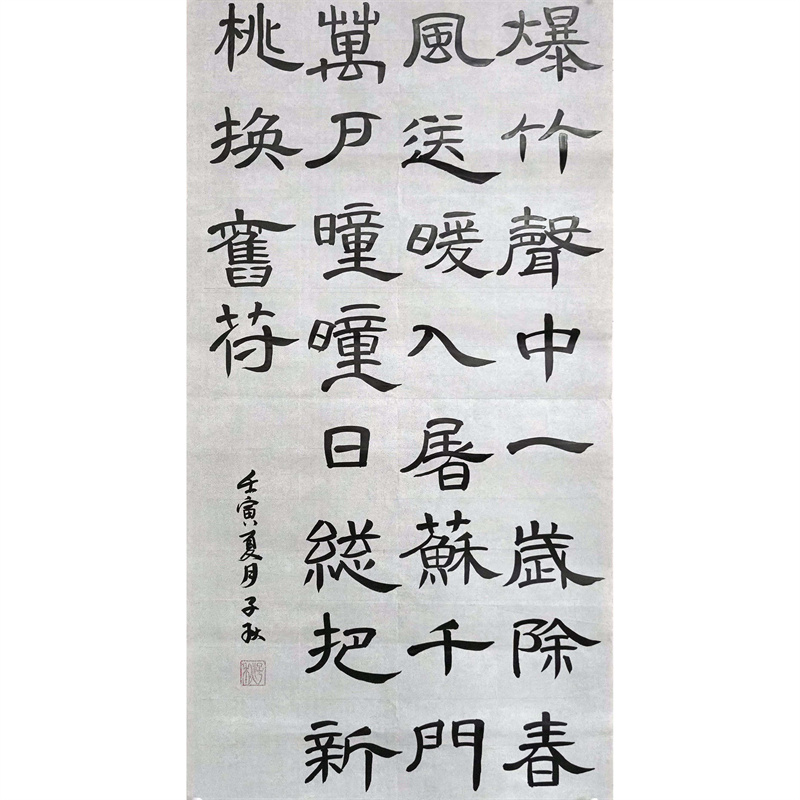 爆竹聲中一歲除春
風送暖入屠蘇千門
萬户曈曈日総把新
桃换舊符
壬寅夏月子秋